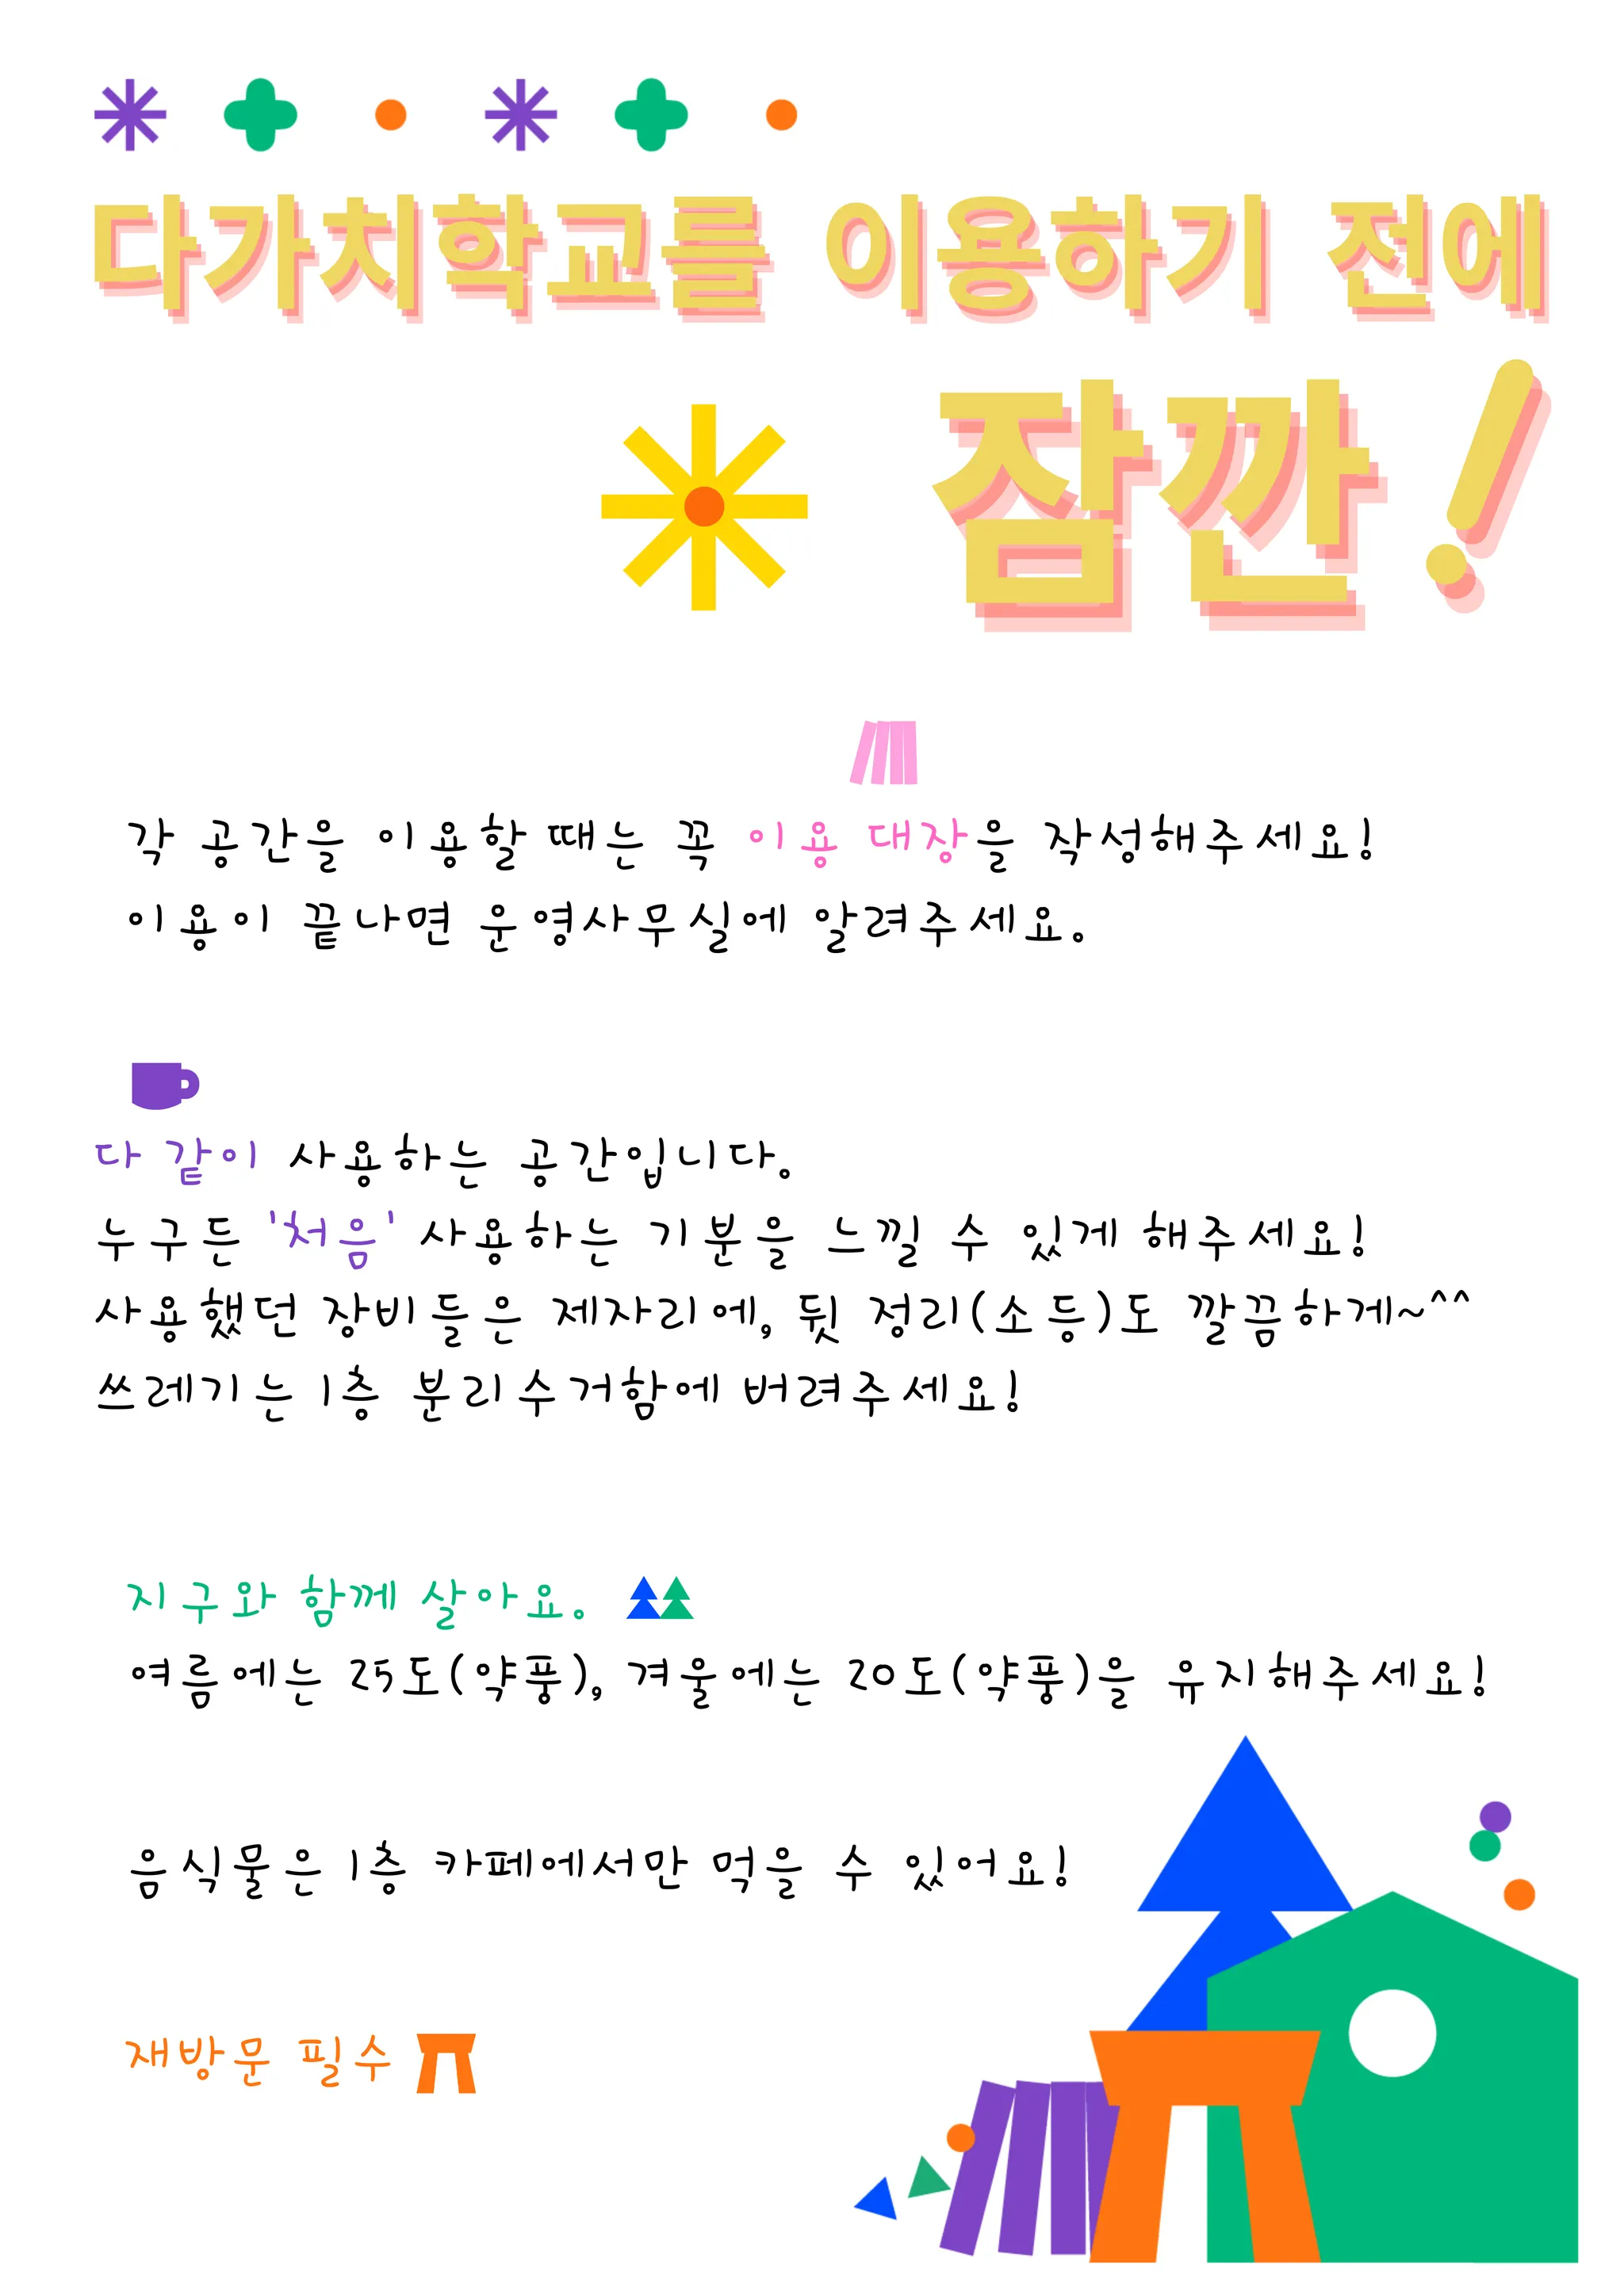 다가치학교를 이용하기 전에
잠깐!
각 공간을 이용할 때는 꼭 이용 대장을 작성해주세요!
이용이 끝나면 운영사무실에 알려주세요.
다 같이 사용하는 공간입니다.
누구든 '처음' 사용하는 기분을 느낄 수 있게 해주세요!
사용했던 장비들은 제자리에, 뒷 정리(소등)도 깔끔하게~^^
쓰레기는 1층 분리수거함에 버려주세요!
지구와 함께 살아요.
여름에는 25도(약풍), 겨울에는 20도(약풍)을 유지해주세요!
음식물은 1층 카페에서만 먹을 수 있어요!
재방문 필수